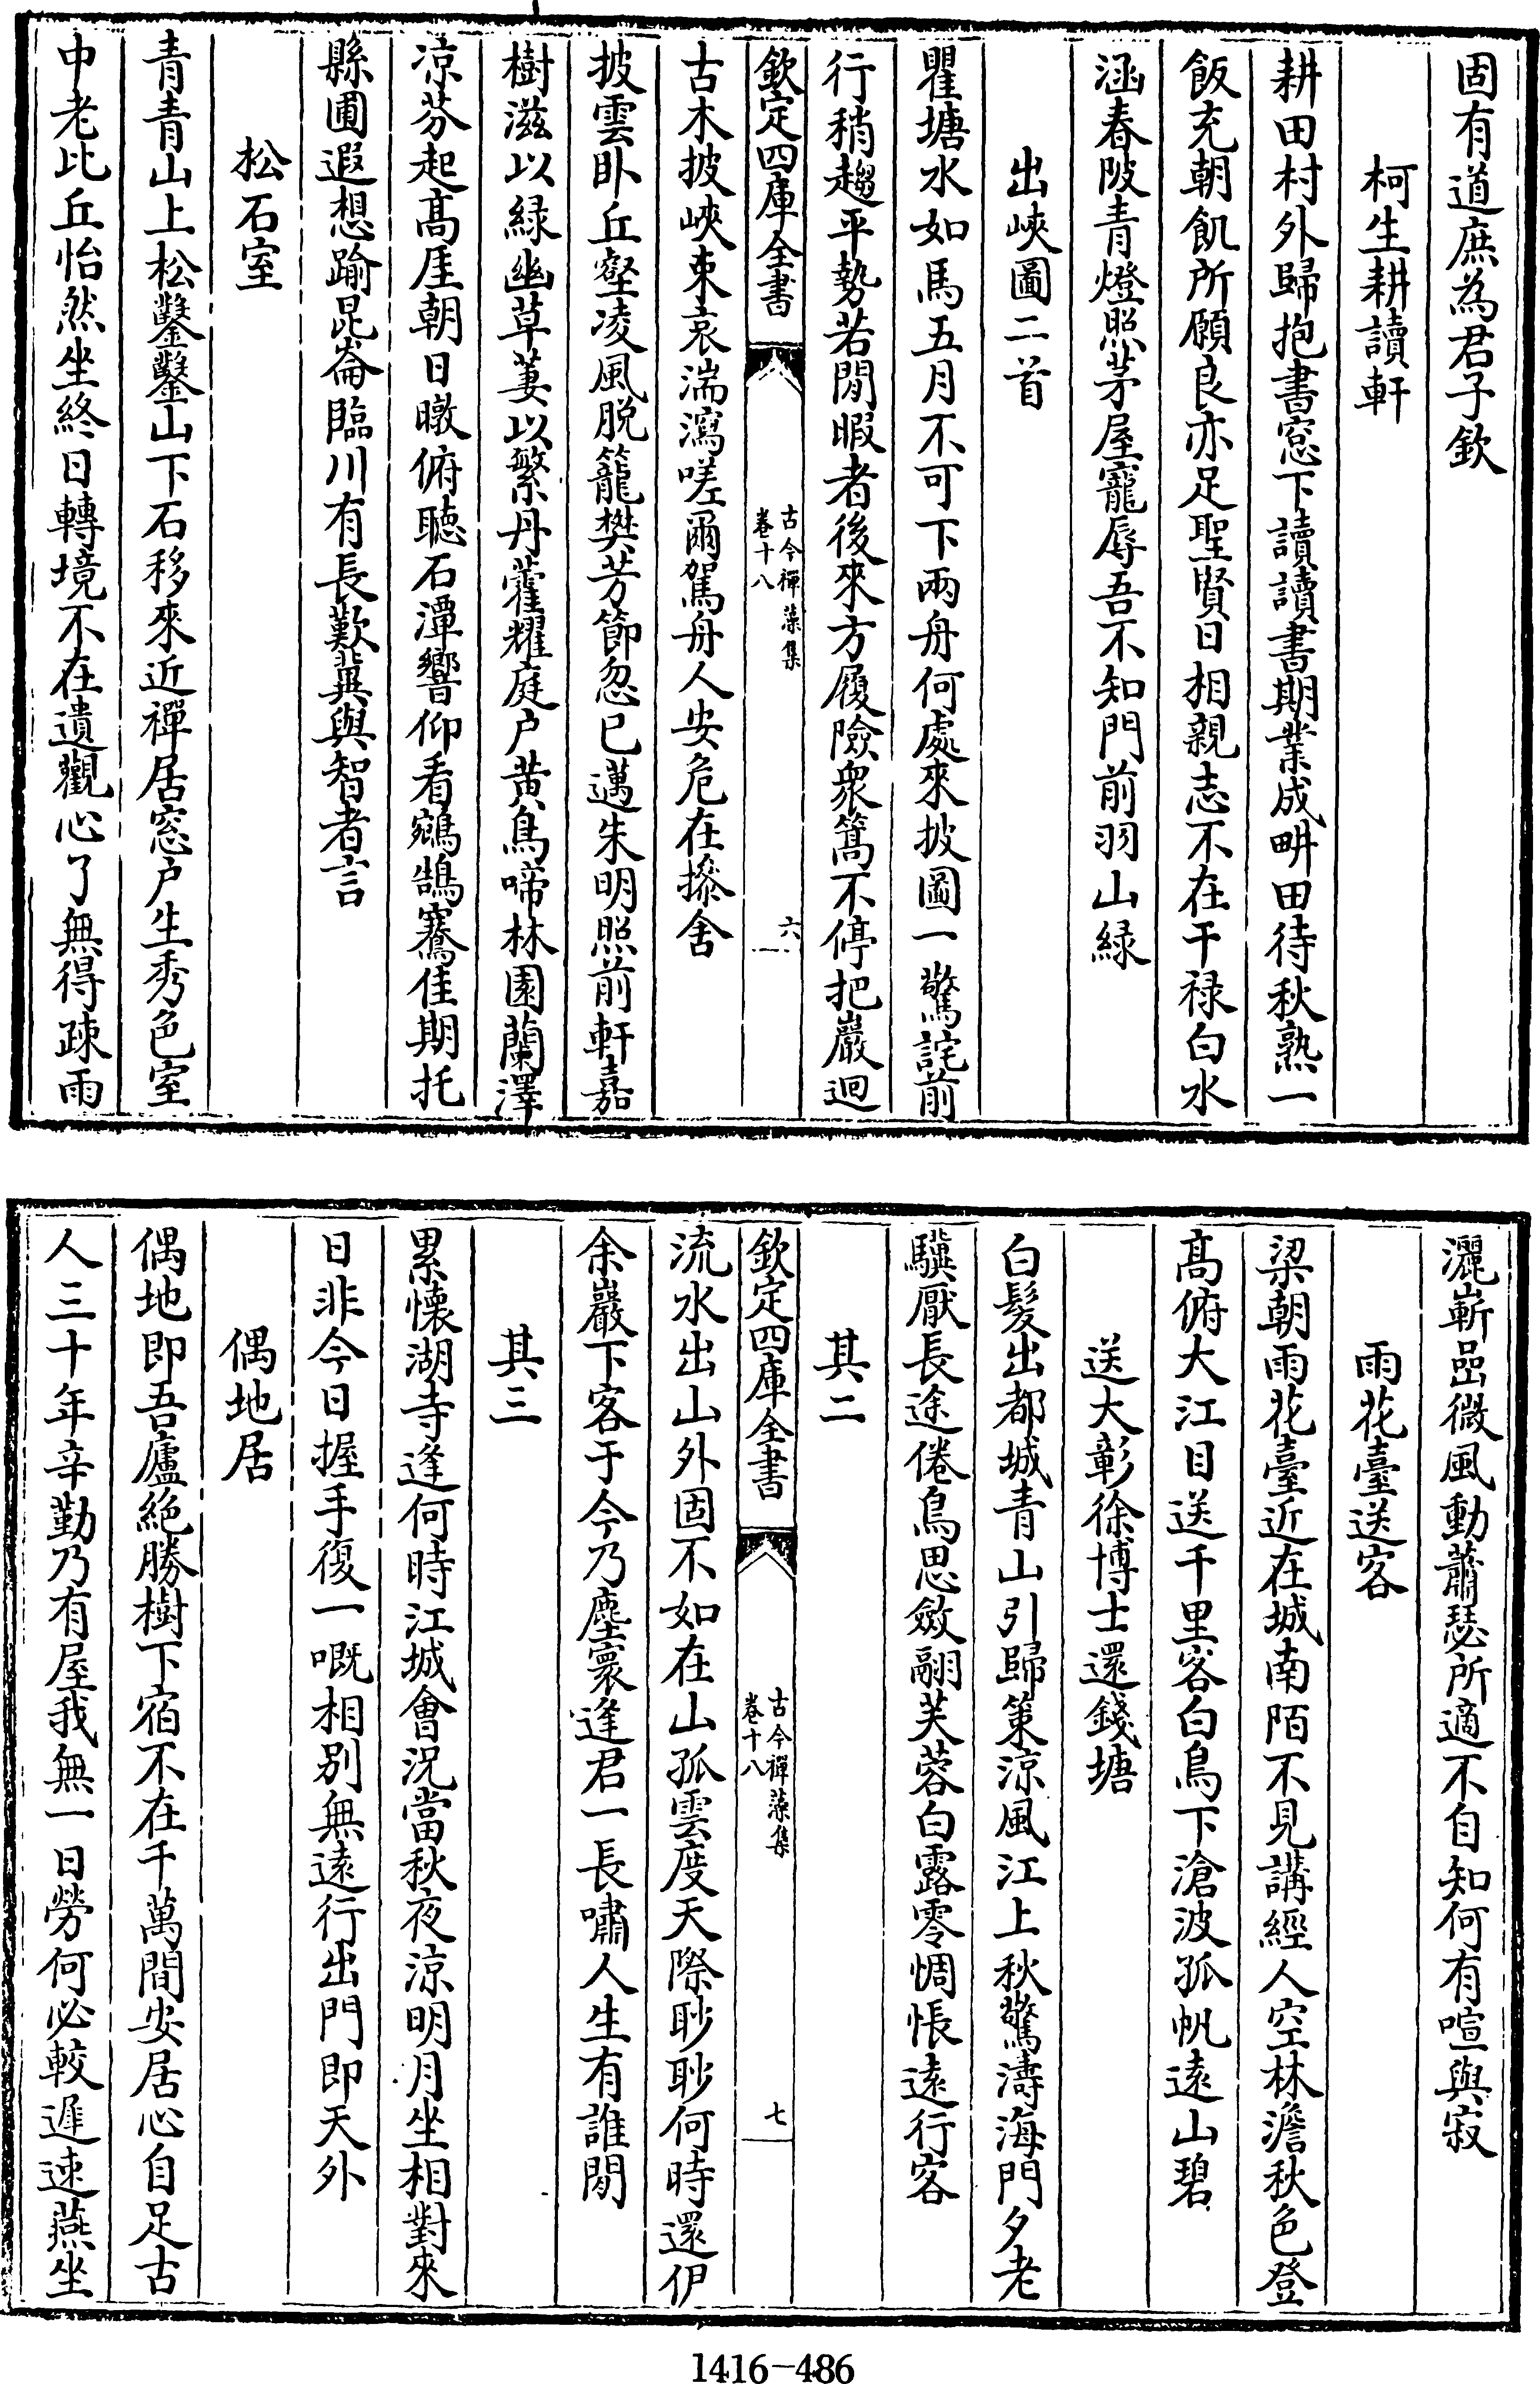 固有道庶為君子欽
柯生耕讀軒
耕田村外歸抱書窓下讀讀書期業成畊田待秋熟一
飯充朝飢所願良亦足聖賢日相親志不在干禄白水
涵春陂青燈照茅屋寵辱吾不知門前羽山緑
出峽圖二首
瞿塘水如馬五月不可下兩舟何處來披圖一驚詫前
行稍趨平勢若閒暇者後來方履險衆篙不停把巖迴
欽定四庫全書
古今禪藻集
卷十八
六
古木披峽束哀湍瀉嗟爾駕舟人安危在㨾舍
披雲卧丘壑凌風脱籠樊芳節忽已邁朱明照前軒嘉
樹滋以緑幽草萋以繁丹藿耀庭户黄鳥啼林園蘭澤
凉芬起髙厓朝日暾俯聽石潭響仰看鵷鵠騫佳期托
縣圃遐想踰昆崙臨川有長歎冀與智者言
松石室
青青山上松鑿鑿山下石移來近禪居窓户生秀色室
中老比丘怡然坐終日轉境不在遺觀心了無得疎雨
灑嶄嵒微風動蕭瑟所適不自知何有喧與寂
雨花臺送客
梁朝雨花臺近在城南陌不見講經人空林澹秋色登
髙俯大江目送千里客白鳥下滄波孤帆遠山碧
送大彰徐博士還錢塘
白髮出都城青山引歸策涼風江上秋驚濤海門夕老
驥厭長途倦鳥思斂翮芙蓉白露零惆悵遠行客
其二
欽定四庫全書
古今禪藻集
卷十八
七
流水出山外固不如在山孤雲度天際眇眇何時還伊
余巖下客于今乃塵寰逢君一長嘯人生有誰閒
其三
累懷湖寺逢何時江城會況當秋夜涼明月坐相對來
日非今日握手復一嘅相別無遠行出門即天外
偶地居
偶地即吾廬絶勝樹下宿不在千萬間安居心自足古
人三十年辛勤乃有屋我無一日勞何必較遲速燕坐
1416-486